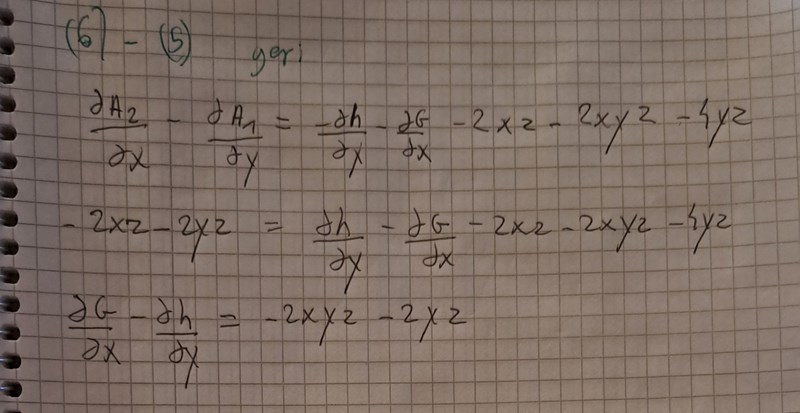 (6) - (5) geri
∂A₂/∂x - ∂A₁/∂y = -∂h/∂y - ∂G/∂x - 2xz - 2xyz - 4yz
- 2xz - 2yz = ∂h/∂y - ∂G/∂x - 2xz - 2xyz - 4yz
∂G/∂x - ∂h/∂y = -2xyz - 2yz